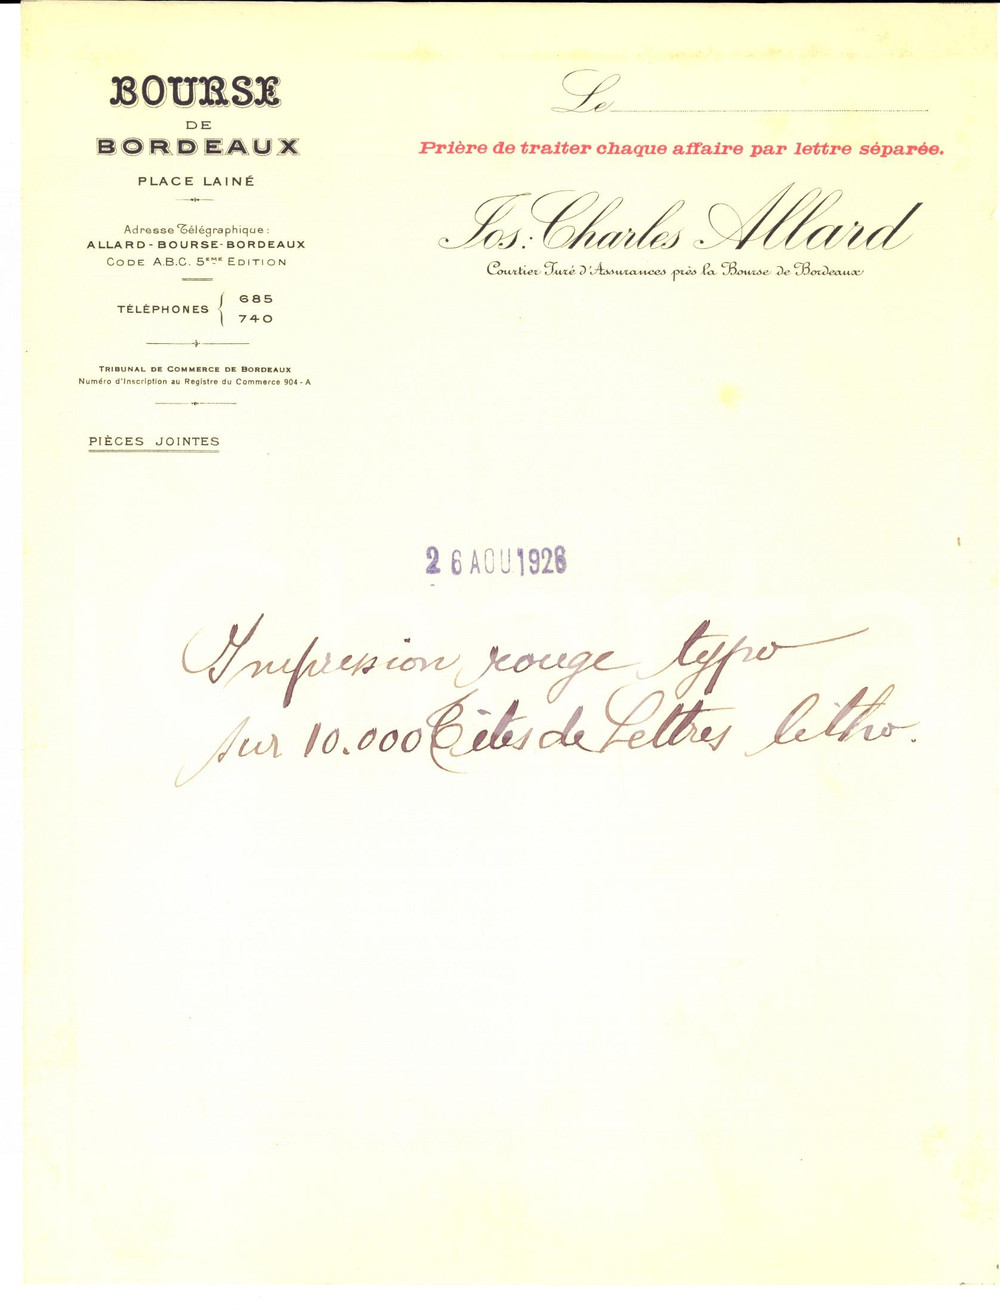 BOURSE
DE
BORDEAUX
PLACE LAINÉ
Adresse Télégraphique :
ALLARD - BOURSE - BORDEAUX
CODE A.B.C. 5EME EDITION
TÉLÉPHONES { 685
740
TRIBUNAL DE COMMERCE DE BORDEAUX
Numéro d'Inscription au Registre du Commerce 904 - A
PIÈCES JOINTES
Le
Prière de traiter chaque affaire par lettre séparée.
Jos. Charles Allard
Courtier Juré d'Assurances près la Bourse de Bordeaux
26 AOU 1926
Impression rouge typo
sur 10.000 Têtes de Lettres litho.